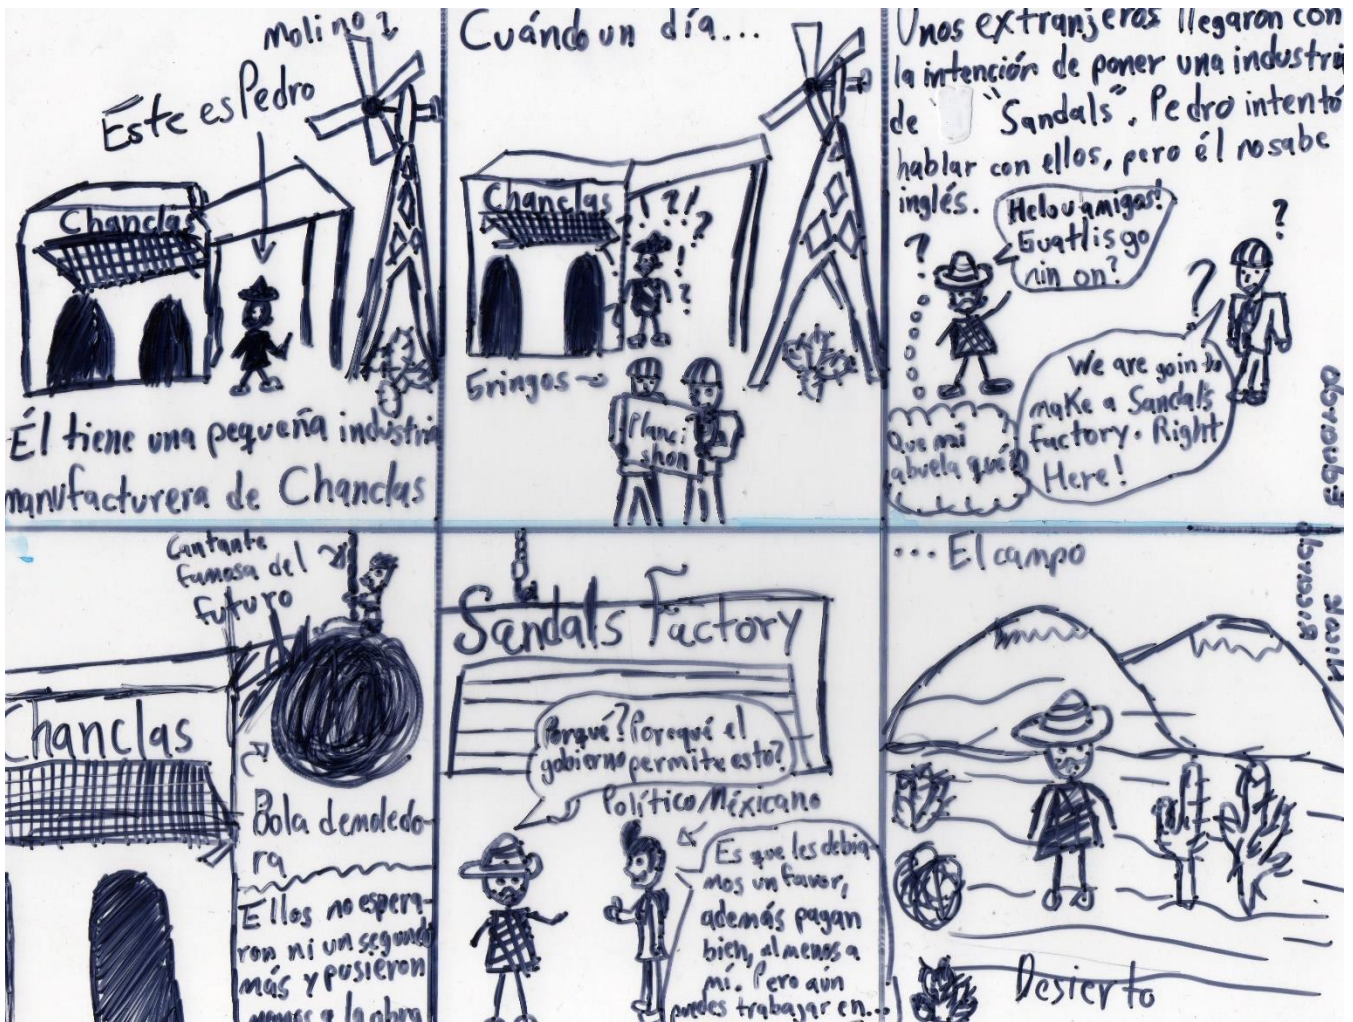 Molino
Éste es Pedro
Chanclas
Él tiene una pequeña industria
manufacturera de Chanclas
Cuándo un día...
Chanclas
? ! ? ! ?
Gringos
Planci
shon
Unos extranjeros llegaron con
la intención de poner una industria
de "Sandals". Pedro intentó
hablar con ellos, pero él no sabe
inglés.
Helou amigos!
Guatlis go
nin on?
?
?
?
Que mi
abuela qué?
We are goin to
make a Sandals
factory. Right
Here!
Cantante
famosa del
futuro
Chanclas
Bola demoledo-
ra
Ellos no espera-
ron ni un segundo
más y pusieron
manos a la obra
Sandals Factory
Porqué? Porqué el
gobierno permite esto?
Político Méxicano
Es que les debia-
mos un favor,
además pagan
bien, al menos a
mí. Pero aún
puedes trabajar en...
... El campo
Desierto